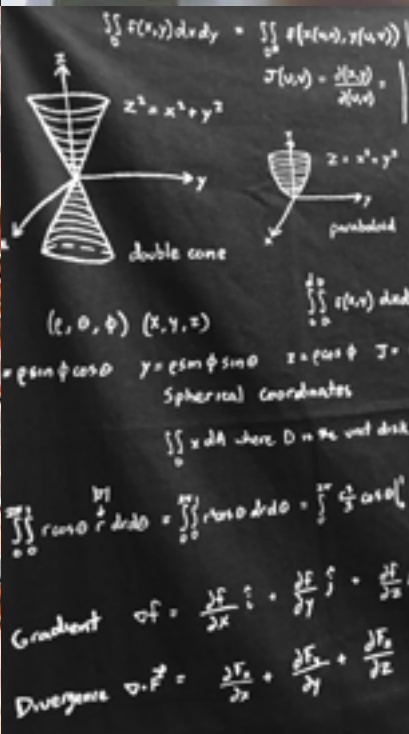 ∬_D f(x,y) dx dy = ∬ f(x(u,v), y(u,v))
J(u,v) = ∂(x,y)/∂(u,v) =
z
z² = x² + y²
y
double cone
z
z = x² + y²
y
x
paraboloid
(ρ, θ, φ) (x, y, z)
= ρ sin φ cos θ y = ρ sin φ sin θ z = ρ cos φ J =
Spherical coordinates
∬_D x dA where D is the unit disk
|J|
∫∫ r cos θ r dr dθ = ∫∫ r² cos θ dr dθ = ∫ r³/3 cos θ |
Gradient ∇f = ∂f/∂x î + ∂f/∂y ĵ + ∂f/∂z
Divergence ∇·F⃗ = ∂Fₓ/∂x + ∂Fᵧ/∂y + ∂F/∂z